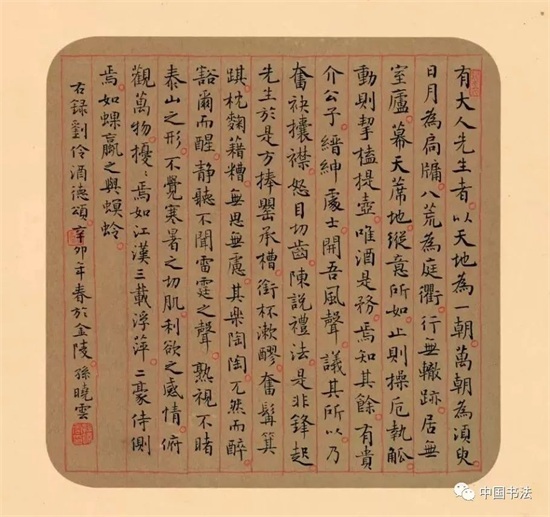 有大人先生者以天地為一朝萬朝為須臾
日月為扃牖八荒為庭衢行無轍跡居無
室廬幕天蓆地縱意所如止則操卮執觚
動則挈榼提壺唯酒是務焉知其餘有貴
介公子縉紳處士聞吾風聲議其所以乃
奮袂攘襟怒目切齒陳說禮法是非鋒起
先生於是方捧罌承槽銜杯漱醪奮髯箕
踑枕麴藉糟無思無慮其樂陶陶兀然而醉
豁爾而醒靜聽不聞雷霆之聲熟視不睹
泰山之形不覺寒暑之切肌利欲之感情俯
觀萬物擾〻焉如江漢三載浮萍二豪侍側
焉如蜾蠃之與螟蛉
右錄劉伶酒德頌辛卯年春於金陵孫曉雲
中国书法